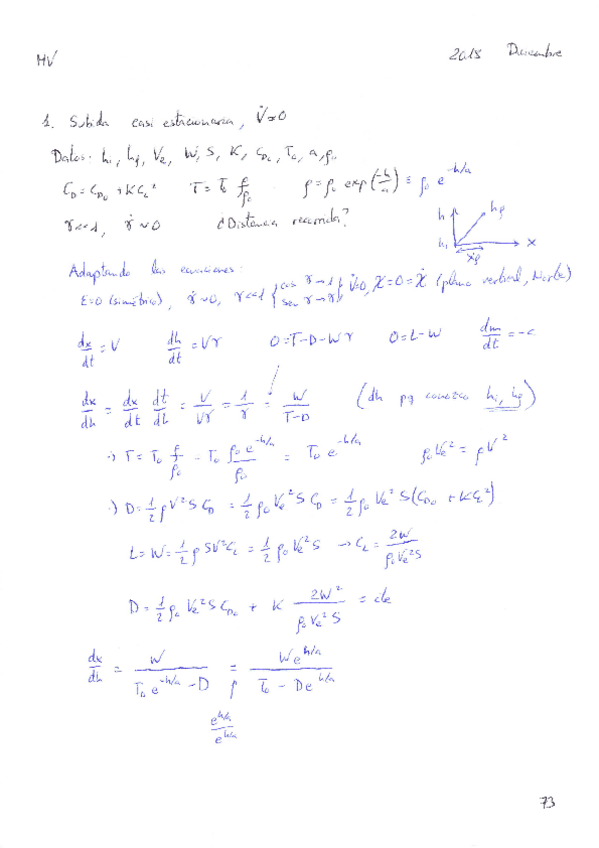 MV 2015 Diciembre
1. Subida casi estacionaria, V̇≈0
Datos: hi, hf, Ve, W, S, K, CD₀, T₀, a, ρ₀
CD = CD₀ + KCL² T = T₀ ρ/ρ₀ ρ = ρ₀ exp(-h/a) ≡ ρ₀ e^(-h/a)
γ<<1, γ̇≈0 ¿Distancia recorrida?
h hf
hi x
xf
Adaptando las ecuaciones:
ε=0 (simétrico), γ̇≈0, γ<<1 { cos γ → 1 sen γ → γ } V̇=0, χ=0=χ̇ (plano vertical, Norte)
dx/dt = V dh/dt = Vγ 0=T-D-Wγ 0=L-W dm/dt = -c
dx/dh = dx/dt dt/dh = V/Vγ = 1/γ = W/(T-D) (dh pq conozco hi, hf)
·) T = T₀ ρ/ρ₀ = T₀ ρ₀e^(-h/a)/ρ₀ = T₀ e^(-h/a) ρ₀Ve² = ρV²
·) D = 1/2 ρV²S CD = 1/2 ρ₀Ve²S CD = 1/2 ρ₀Ve²S(CD₀ + KCL²)
L = W = 1/2 ρSV²CL = 1/2 ρ₀Ve²S → CL = 2W/(ρ₀Ve²S)
D = 1/2 ρ₀Ve²S CD₀ + K 2W²/(ρ₀Ve²S) = cte
dx/dh = W/(T₀ e^(-h/a) - D) = We^(h/a)/(T₀ - De^(h/a))
e^(h/a)/e^(h/a)
73